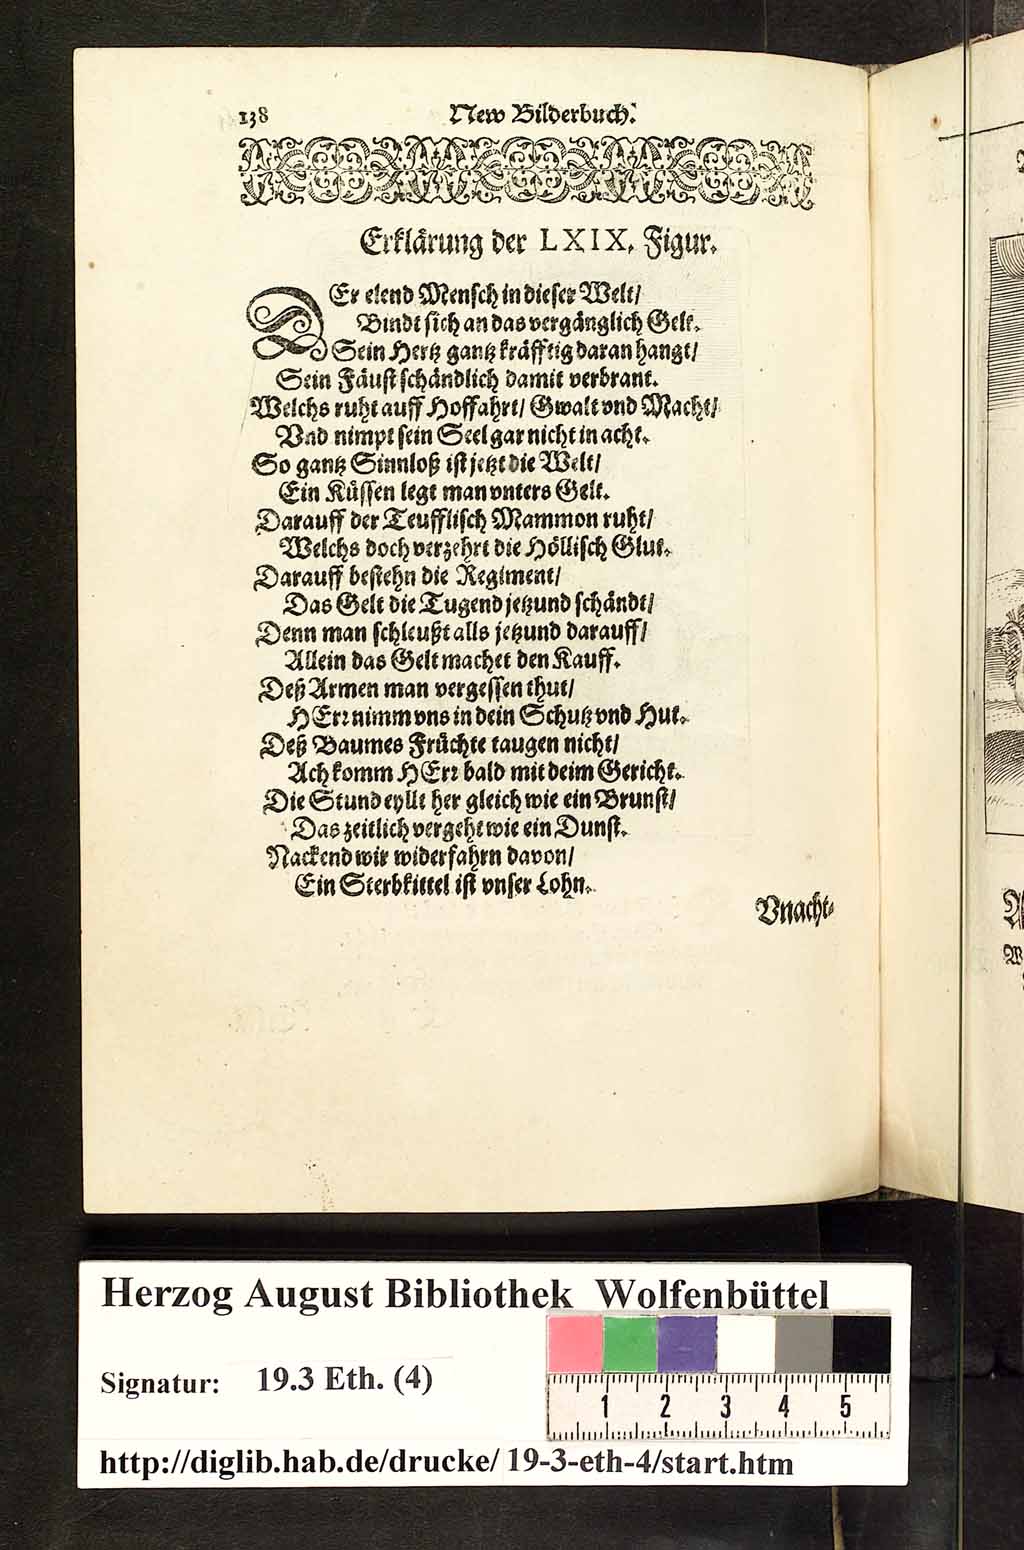 138 New Bilderbuch.
Erklärung der LXIX. Figur.
DEr elend Mensch in dieser Welt/
Bindt sich an das vergänglich Gelt.
Sein Hertz gantz kräfftig daran hangt/
Sein Fäust schändlich damit verbrant.
Welchs ruht auff Hoffahrt/ Gwalt vnd Macht/
Vnd nimpt sein Seel gar nicht in acht.
So gantz Sinnloß ist jetzt die Welt/
Ein Küssen legt man vnters Gelt.
Darauff der Teufflisch Mammon ruht/
Welchs doch verzehrt die Höllisch Glut.
Darauff bestehn die Regiment/
Das Gelt die Tugend jetzund schändt/
Denn man schleußt alls jetzund darauff/
Allein das Gelt machet den Kauff.
Deß Armen man vergessen thut/
HErr nimm vns in dein Schutz vnd Hut.
Deß Baumes Früchte taugen nicht/
Ach komm HErr bald mit deim Gericht.
Die Stund eyllt her gleich wie ein Brunst/
Das zeitlich vergeht wie ein Dunst.
Nackend wir widerfahrn davon/
Ein Sterbkittel ist vnser Lohn.
Vnacht-
Herzog August Bibliothek Wolfenbüttel
Signatur: 19.3 Eth. (4)
1 2 3 4 5
http://diglib.hab.de/drucke/ 19-3-eth-4/start.htm